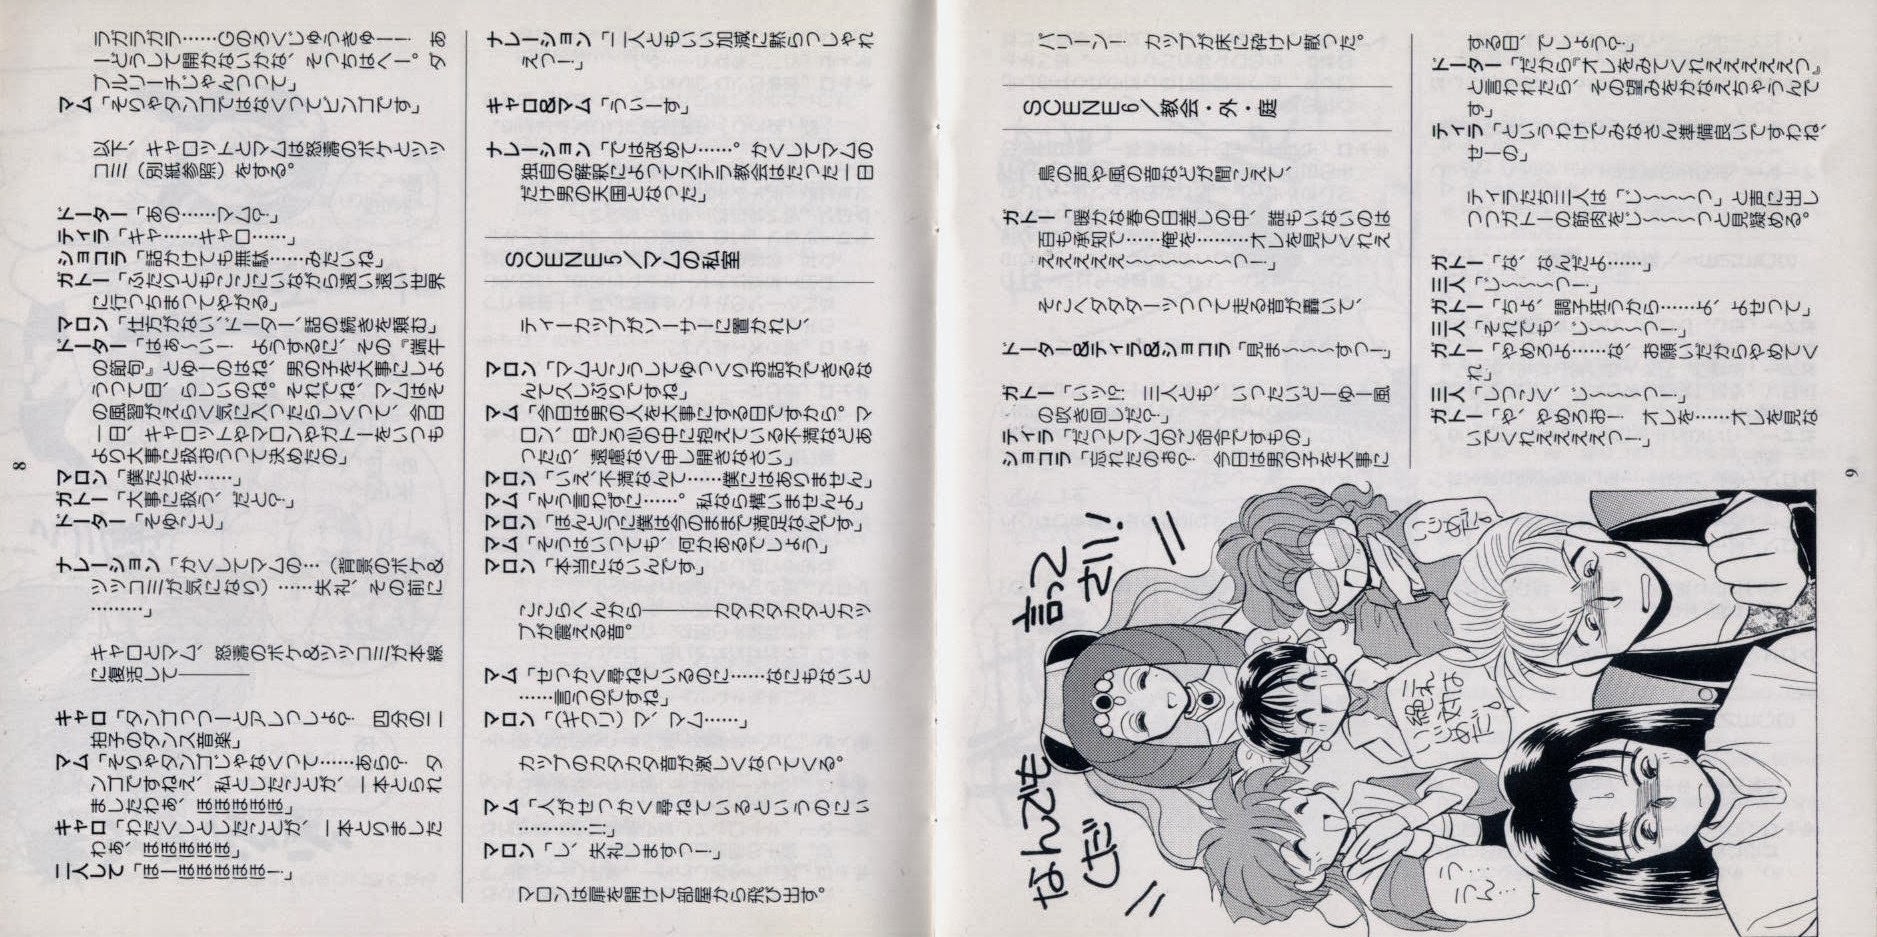 ラガラガラ……Gのろくじゅうきゅー！　あ
ーどうして開かないかな、そっちはへー。ダ
ブルリーチじゃんつって」
マム「そりゃタンゴではなくってビンゴです」
以下、キャロットとマムは怒濤のボケとツッ
コミ（別紙参照）をする。
ドーター「あの……マム？」
ティラ「キャ……キャロ……」
ショコラ「話かけても無駄……みたいね」
ガトー「ふたりともここにいながら遠い遠い世界
に行っちまってやがる」
マロン「仕方がない、ドーター、話の続きを頼む」
ドーター「はぁ〜い！　ようするに、その『端午
の節句』とゆーのはね、男の子を大事にしよ
うって日、らしいのね。それでね、マムはそ
の風習がえらく気に入ったらしくって、今日
一日、キャロットやマロンやガトーをいつも
より大事に扱おうって決めたの」
マロン「僕たちを……」
ガトー「大事に扱う、だと？」
ドーター「そゆこと」
ナレーション「かくしてマムの…（背景のボケ&
ツッコミが気になり）……失礼、その前に
…………」
キャロとマム、怒濤のボケ&ツッコミが本線
に復活して————
キャロ「タンゴっつーとアレっしょ？　四分の二
拍子のダンス音楽」
マム「そりゃタンゴじゃなくって……あら？　タ
ンゴですねえ、私としたことが、一本とられ
ましたわぁ、ほほほほほ」
キャロ「わたくしとしたことが、一本とりました
わぁ、ほほほほほ」
二人して「ほーほほほほほ！」
8
ナレーション「二人ともいい加減に黙らっしゃれ
えっ！」
キャロ&マム「ういーす」
ナレーション「では改めて……。かくしてマムの
独自の解釈によってステラ教会はたった一日
だけ男の天国となった」
SCENE5／マムの私室
ティーカップがソーサーに置かれて、
マロン「マムとこうしてゆっくりお話ができるな
んて久しぶりですね」
マム「今日は男の人を大事にする日ですから。マ
ロン、日ごろ心の中に抱えている不満などあ
ったら、遠慮なく申し開きなさい」
マロン「いえ、不満なんて……僕にはありません」
マム「そう言わずに……。私なら構いませんよ」
マロン「ほんとうに僕は今のままで満足なんです」
マム「そうはいっても、何かあるでしょう」
マロン「本当にないんです」
ここらへんから————カタカタカタとカッ
プが震える音。
マム「せっかく尋ねているのに……なにもないと
……言うのですね」
マロン「（ギクリ）マ、マム……」
カップのカタカタ音が激しくなってくる。
マム「人がせっかく尋ねているというのにい
…………!!」
マロン「し、失礼しますっ！」
マロンは扉を開けて部屋から飛び出す。
パリーン！　カップが床に砕けて散った。
SCENE6／教会・外・庭
鳥の声や風の音などが聞こえて、
ガトー「暖かな春の日差しの中、誰もいないのは
百も承知で……俺を………オレを見てくれえ
えええええ〜〜〜〜〜っ！」
そこへダダダーッつって走る音が轟いて、
ドーター&ティラ&ショコラ「見ま〜〜〜すっ！」
ガトー「いッ!?　三人とも、いったいどーゆー風
の吹き回しだ？」
ティラ「だってマムのご命令ですもの」
ショコラ「忘れたのぉ？　今日は男の子を大事に
する日、でしょう？」
ドーター「だから『オレをみてくれえええええっ』
と言われたら、その望みをかなえちゃうんで
す」
ティラ「というわけでみなさん準備良いですわね、
せーの」
ティラたち三人は「じ〜〜〜〜っ」と声に出し
つつガトーの筋肉をじ〜〜〜〜っと見疑める。
ガトー「な、なんだよ……」
三人「じ〜〜〜〜っ！」
ガトー「ちょ、調子狂うから……よ、よせって」
三人「それでも、じ〜〜〜〜っ！」
ガトー「やめろよ……な、お願いだからやめてく
れ」
三人「しつこく、じ〜〜〜〜っ！」
ガトー「や、やめろぉ！　オレを……オレを見な
いでくれええええっ！」
9
なんでも
言って
くださいっ！
いじめだっ
これは
絶対
いじめだっ！
う…
うん…